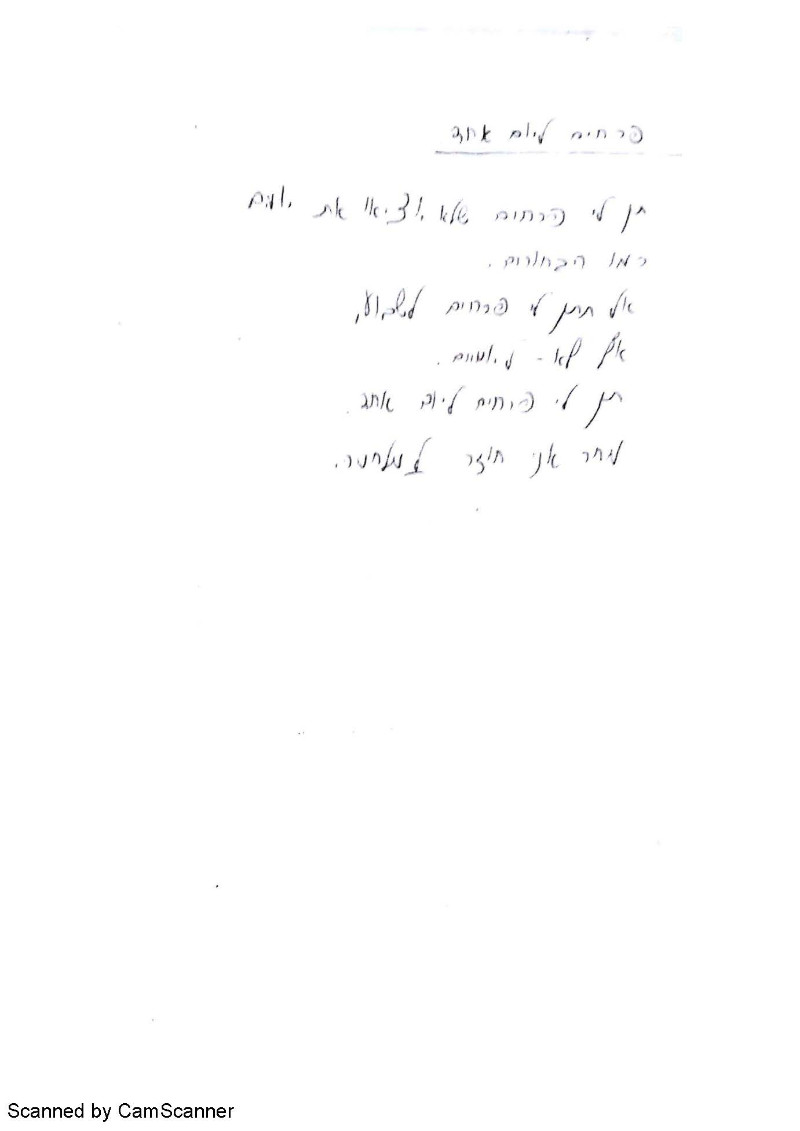 פרחים ליום אחד
תן לי פרחים שלא יוציאו את
כמו הבחורות.
אל תתן לי פרחים לשבוע,
אף לא - ליומיים.
תן לי פרחים ליום אחד.
מחר אני חוזר למלחמה.
Scanned by CamScanner